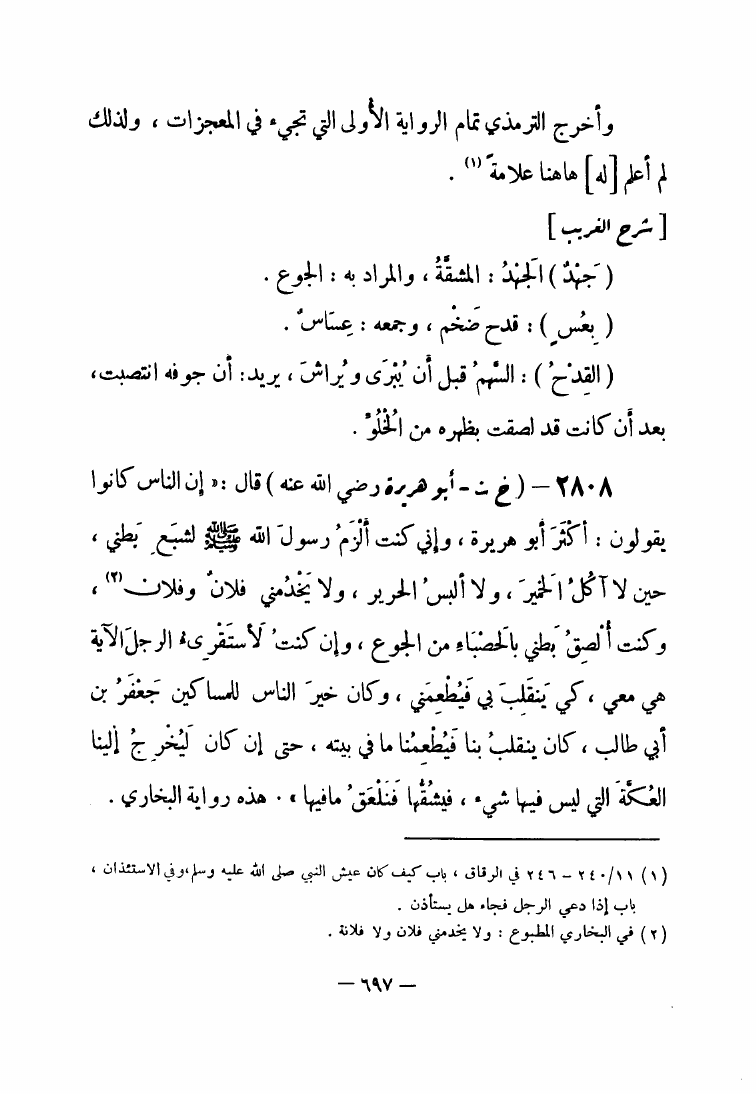 وأخرج الترمذي تمام الرواية الأولى التي تجيء في المعجزات ، ولذلك
لم أعلم [له] هاهنا علامةً (١) .
[ شرح الغريب ]
( جَهْدٌ ) الجَهْدُ : المشقَّةُ ، والمراد به : الجوع .
( بِعُسٍ ) : قدح ضَخْم ، وجمعه : عِسَاسٌ .
( القِدْحُ ) : السَّهمُ قبل أن يُبْرَى ويُراشَ ، يريد : أن جوفه انتصبت،
بعد أن كانت قد لصقت بظهره من الخُلُوِّ .
٢٨٠٨ – ( خ ت - أبو هريرة رضي الله عنه ) قال : « إن الناس كانوا
يقولون : أكثَرَ أبو هريرة ، وإني كنت ألْزَمُ رسولَ الله ﷺ لشبَع بَطني ،
حين لا آكُلُ الخميرَ ، ولا ألبسُ الحرير ، ولا يَخْدُمني فلانٌ وفلان (٢) ،
وكنت أُلصِقُ بَطني بالحَصْبَاءِ من الجوع ، وإن كنتُ لَأستَقْرِىءُ الرجلَ الآية
هي معي ، كي يَنقلِبَ بي فَيُطْعِمَني ، وكان خيرَ الناس للمساكين جَعْفَرُ بن
أبي طالب ، كان ينقلبُ بنا فَيُطْعِمُنا ما في بيته ، حتى إن كان لَيُخْرِجُ إلينا
العُكَّةَ التي ليس فيها شيء ، فيشُقُّها فَنَلْعَقُ مافيها » . هذه رواية البخاري .
(١) ٢٤٠/١١ – ٢٤٦ في الرقاق ، باب كيف كان عيش النبي صلى الله عليه وسلم،وفي الاستئذان ،
باب إذا دعي الرجل فجاء هل يستأذن .
(٢) في البخاري المطبوع : ولا يخدمني فلان ولا فلانة .
– ٦٩٧ –